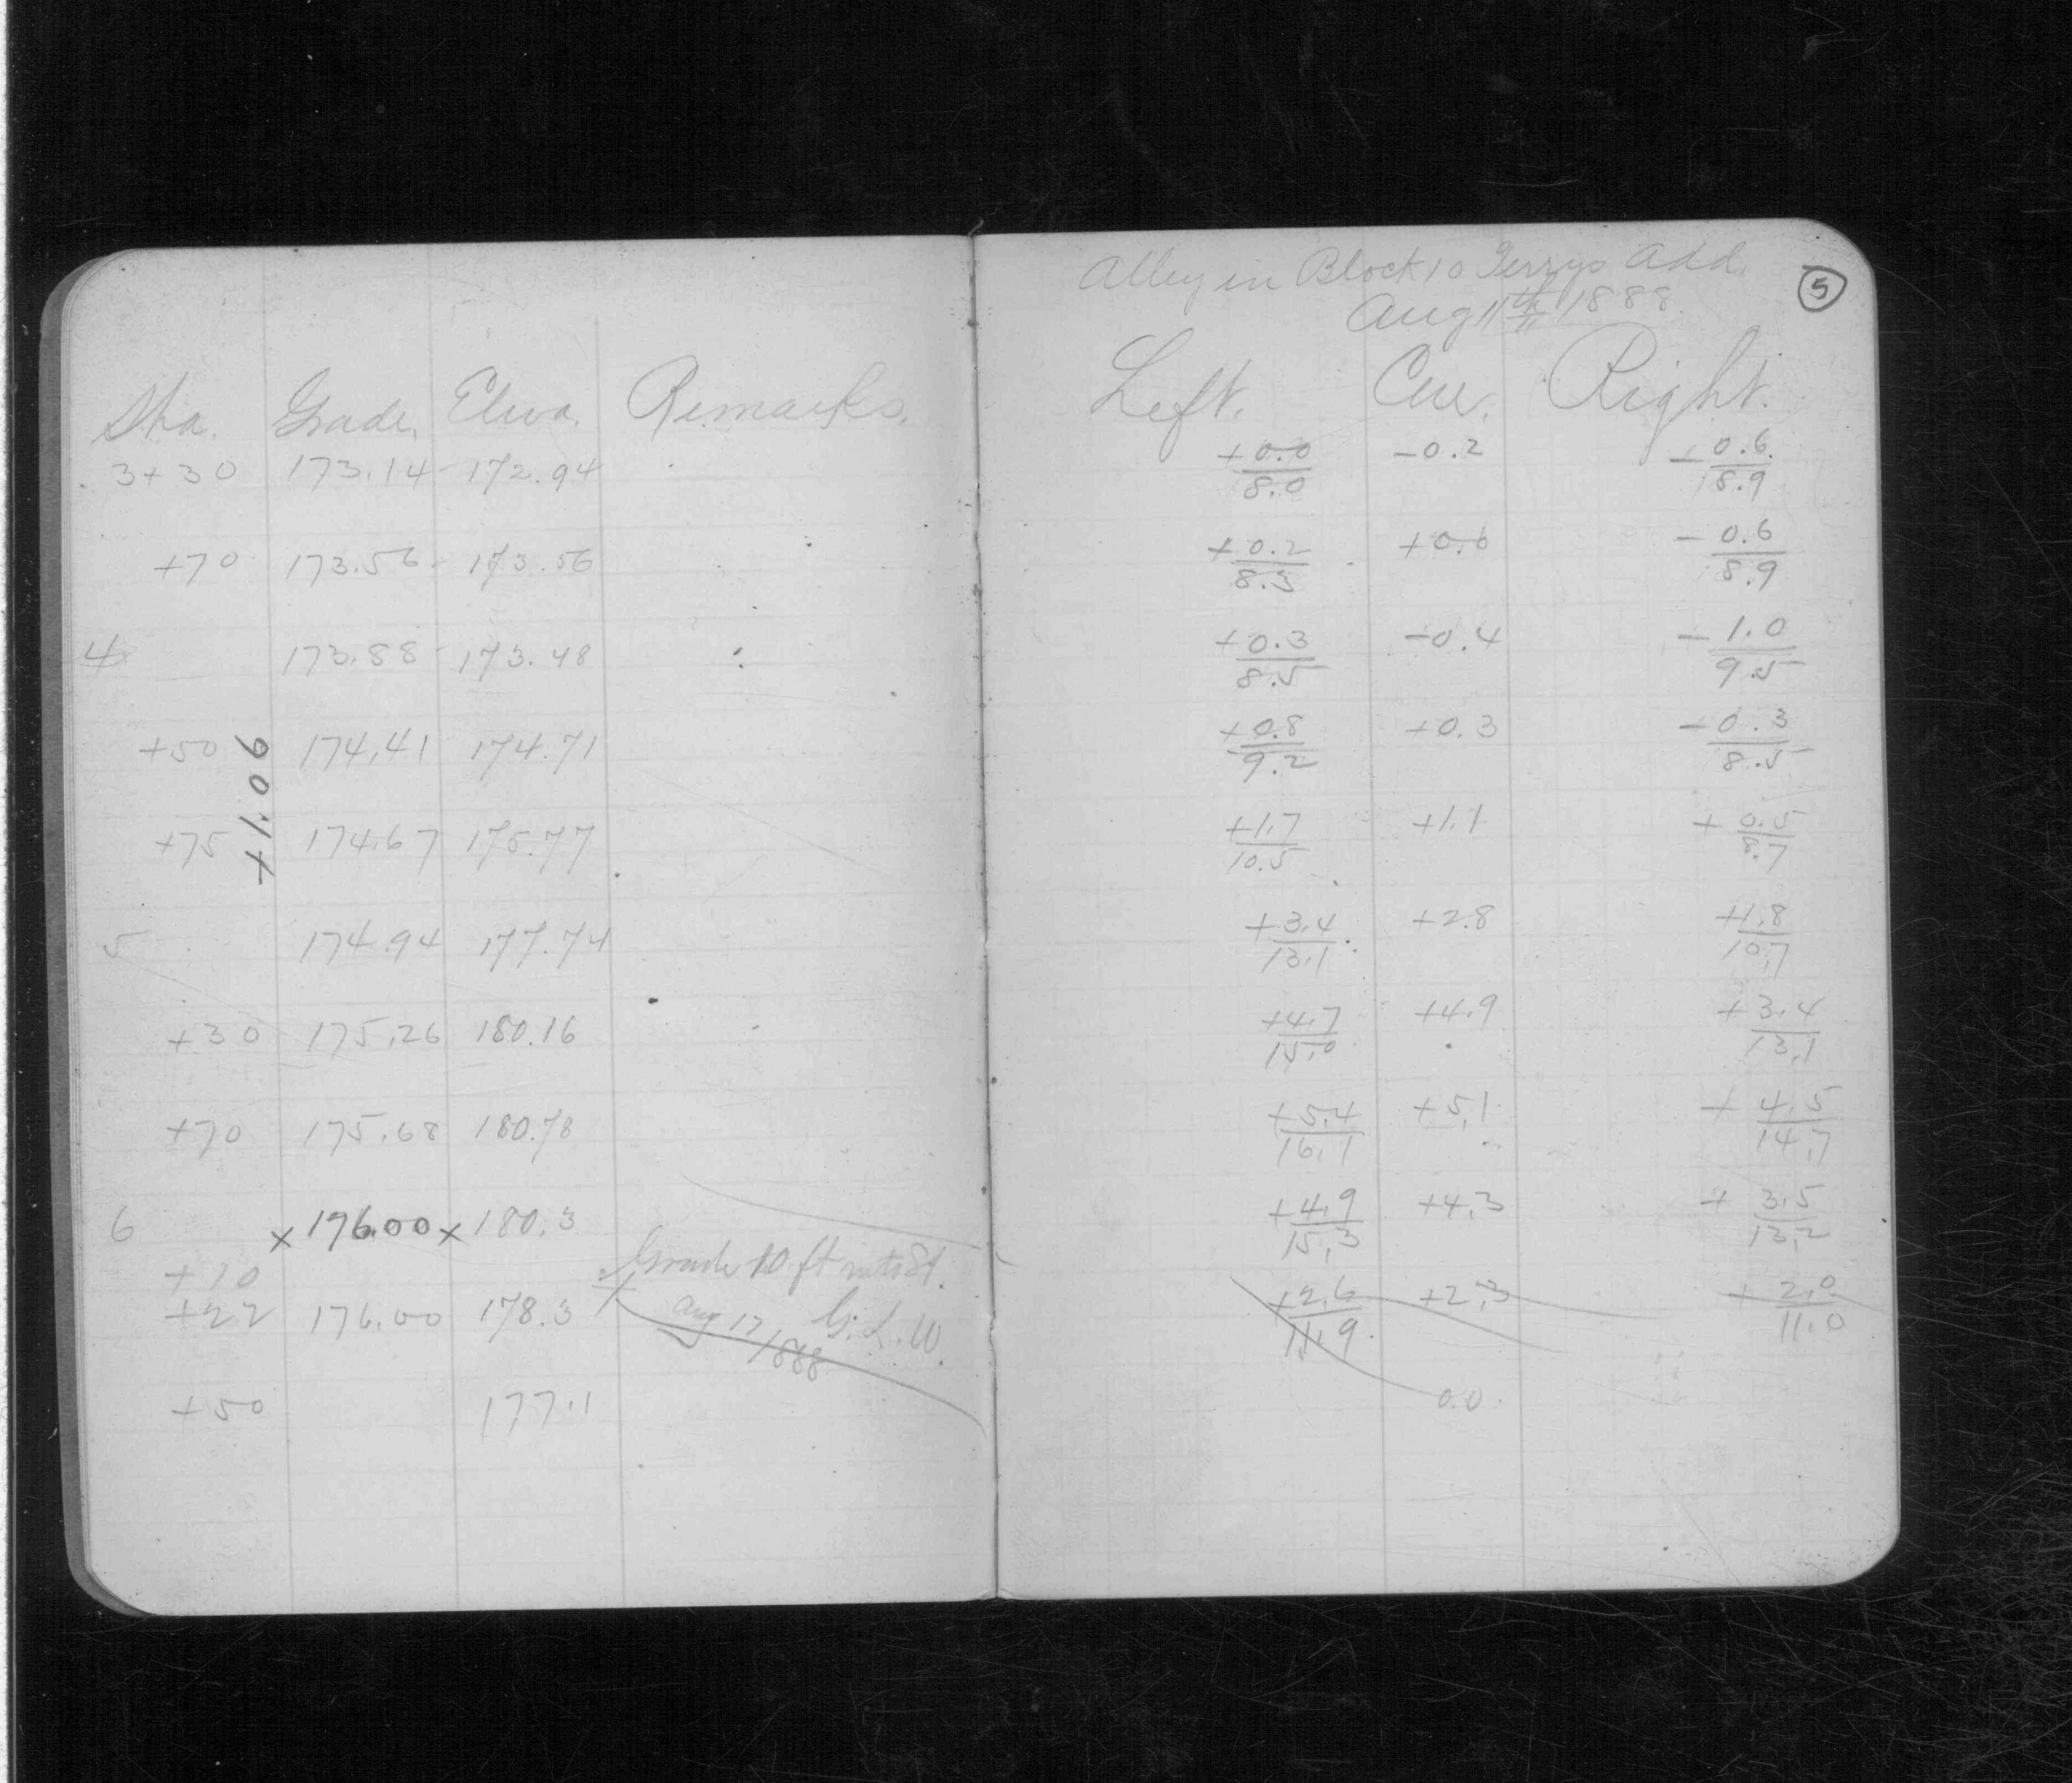 Alley in Block 10 Terrys Add.
Aug 11th 1888
5
Sta. Grade. Eleva. Remarks. Left. Cen. Right.
3+30 173.14 172.94 +0.0/8.0 -0.2 -0.6/8.9
+70 173.56 173.56 +0.2/8.3 +0.0 -0.6/8.9
4 173.88 173.48 +0.3/8.5 -0.4 -1.0/9.5
+50 174.41 174.71 +0.8/9.2 +0.3 -0.3/8.5
+1.06
+75 174.67 175.77 +1.7/10.5 +1.1 +0.5/8.7
5 174.94 177.74 +3.4/13.1 +2.8 +1.8/10.7
+30 175.26 180.16 +4.7/15.0 +4.9 +3.4/13.1
+70 175.68 180.78 +5.4/16.1 +5.1 +4.5/14.7
6 x 176.00 x 180.3 +4.9/15.3 +4.3 +3.5/13.2
+10 Grade 10 ft into St.
+22 176.00 178.3 G. L. W. +2.6/11.9 +2.3 +2.0/11.0
Aug 17/1888
+50 177.1 0.0